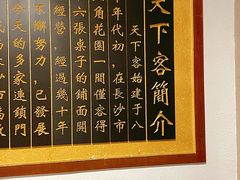 天下客簡介
天下客始建于八
十年代初，在長沙市
角花園一間僅容得
六張桌子的鋪面開
經營，經過幾十年
懈努力，已發展
今天的多家連鎖門